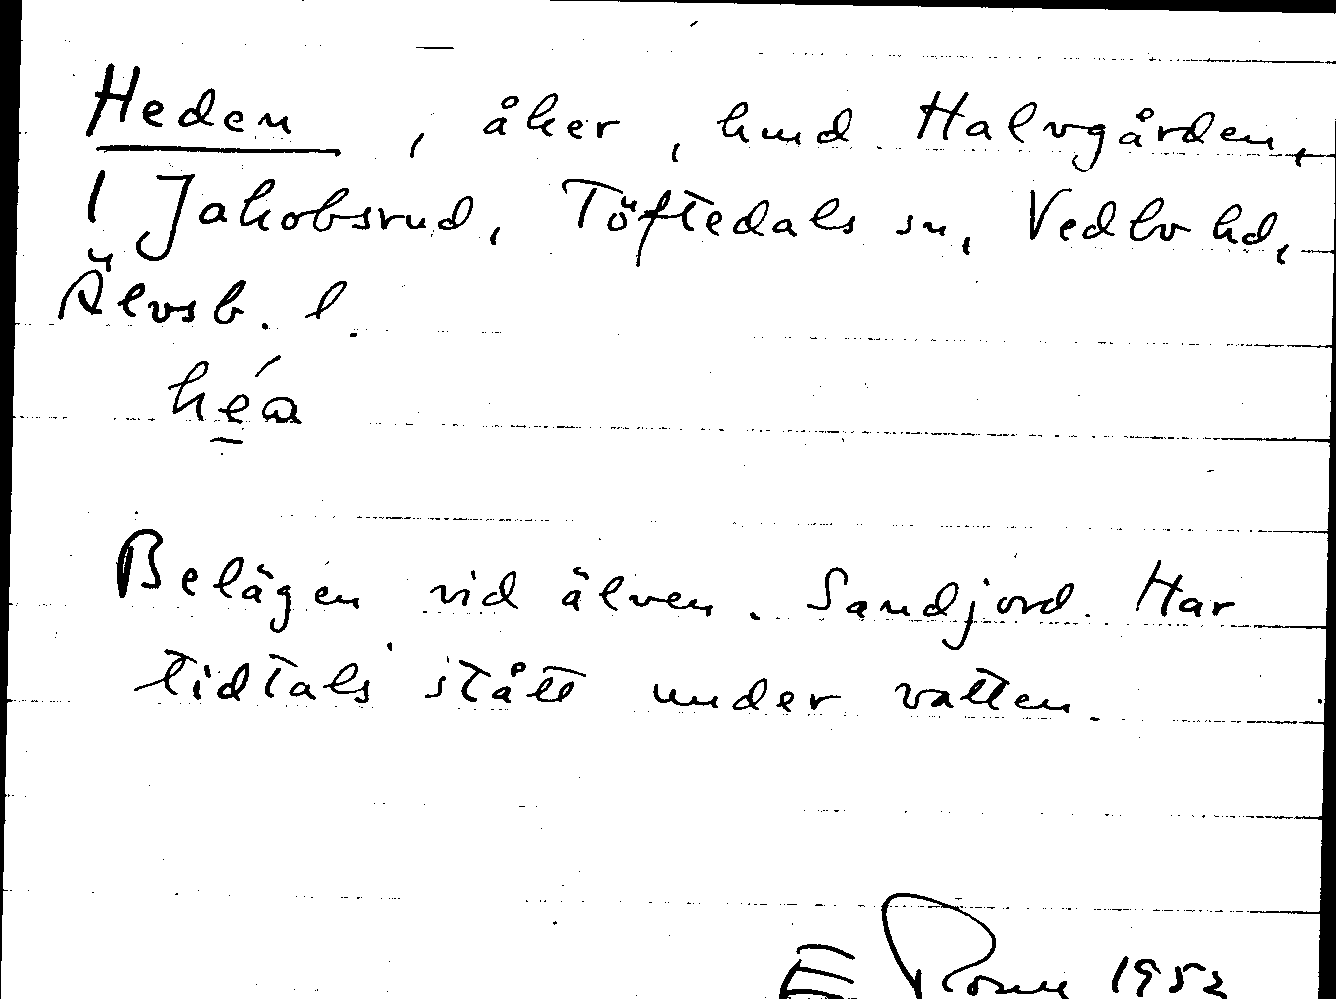 Heden, åker, hmd Halvgården,
1 Jakobsrud, Töftedals sn, Vedbo hd,
Älvsb. l.
héa
Belägen vid älven. Sandjord. Har
tidtals stått under vatten.
E 1952